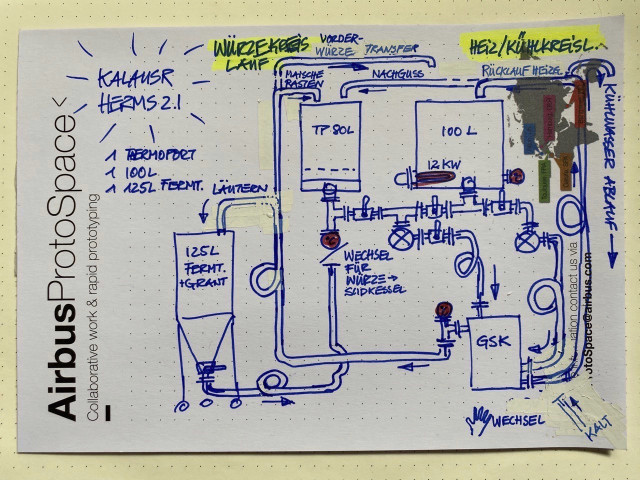 WÜRZEKREIS
LAUF
VORDER-
WÜRZE TRANSFER
HEIZ/KÜHLKREISL.
KALAUSR
HERMS 2.1
MAISCHE
RASTEN
NACHGUSS
RÜCKLAUF HEIZG
KÜHLWASSER ABLAUF
1 THERMOPORT
1 100L
1 125L FERMT.
LÄUTERN
TP 80L
100 L
12 KW
125L
FERMT.
+GRANT
WECHSEL
FÜR
WÜRZE→
SUDKESSEL
GSK
WECHSEL
KALT
AirbusProtoSpace
Collaborative work & rapid prototyping
mation contact us via
otoSpace@airbus.com